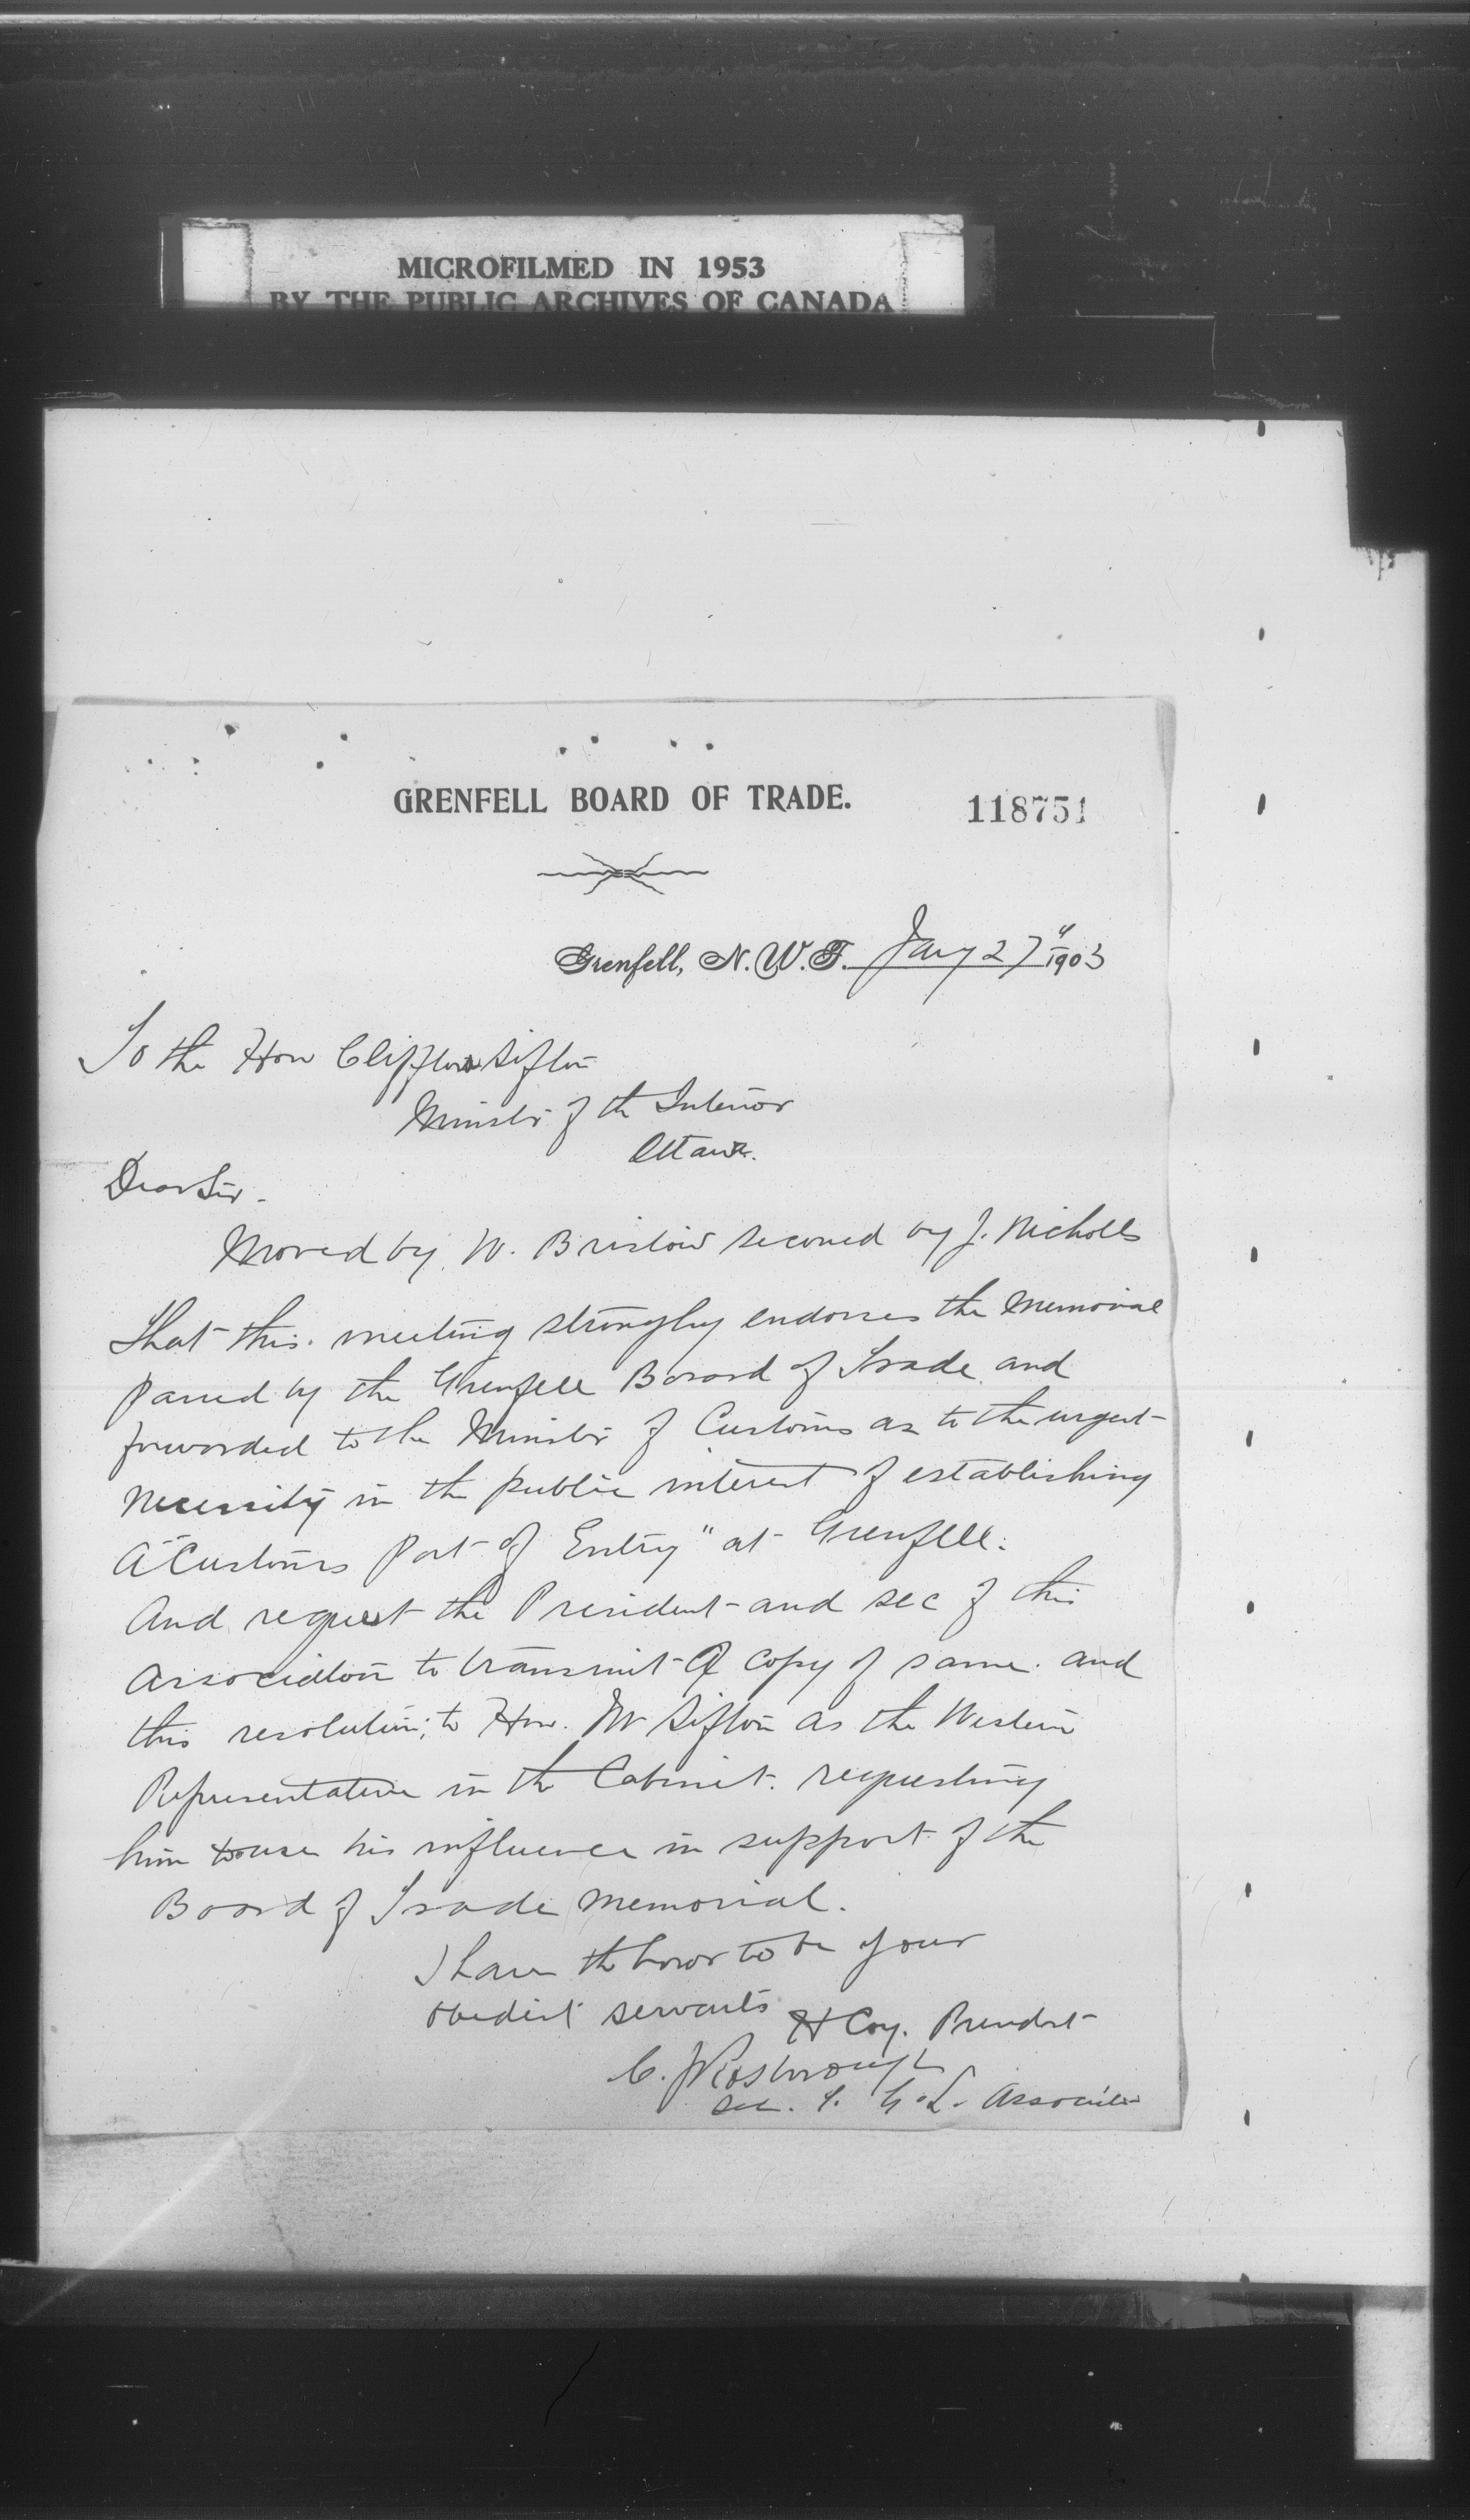 MICROFILMED IN 1953
BY THE PUBLIC ARCHIVES OF CANADA
GRENFELL BOARD OF TRADE.
118751
Grenfell, N.W.T. Jany 27" 1903
To the Hon Clifford Sifton
Minister of the Interior
Ottawa.
Dear Sir -
Moved by W. Bristow seconed by J. Nicholls
That this meeting strongly endorses the memorial
passed by the Grenfell Board of Trade and
forwarded to the Minister of Customs as to the urgent
necessity in the public interest of establishing
A "Customs Port of Entry" at Grenfell.
And request the President and sec of this
Association to transmit a copy of same and
this resolution; to Hon. Mr Sifton as the Western
Representative in the Cabinet. requesting
him to use his influence in support of the
Board of Trade memorial.
I have the honor to be your
obedient servants
H Coy. President
C. J Rosborough
Sec. G. L. Association